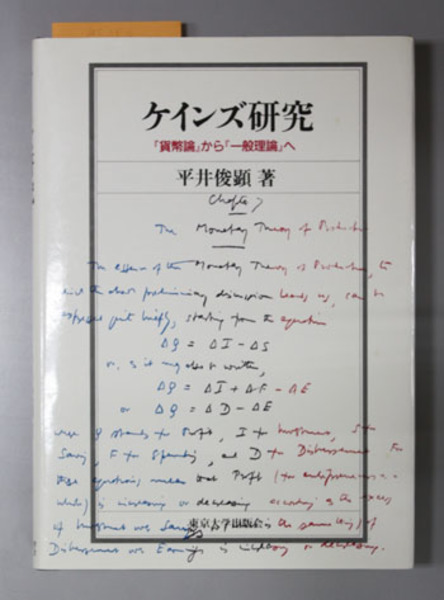 ケインズ研究
『貨幣論』から『一般理論』へ
平井俊顕 著
Chapter 7
The Monetary Theory of Production
The essence of the Monetary Theory of Production, to
which the above preliminary discussion leads us, can be
expressed quite briefly, starting from the equation
ΔQ = ΔI - ΔS
or, as it may also be written,
ΔQ = ΔI + ΔF - ΔE
or ΔQ = ΔD - ΔE
where Q stands for Profit, I for Investment, S for
Saving, F for Spending, and D for Disbursement. For
these equations that Profit (to entrepreneurs as a
whole) is increasing or decreasing according as the excess
of Investment over Saving is the same thing) of
Disbursement over Earnings is increasing or decreasing.
東京大学出版会